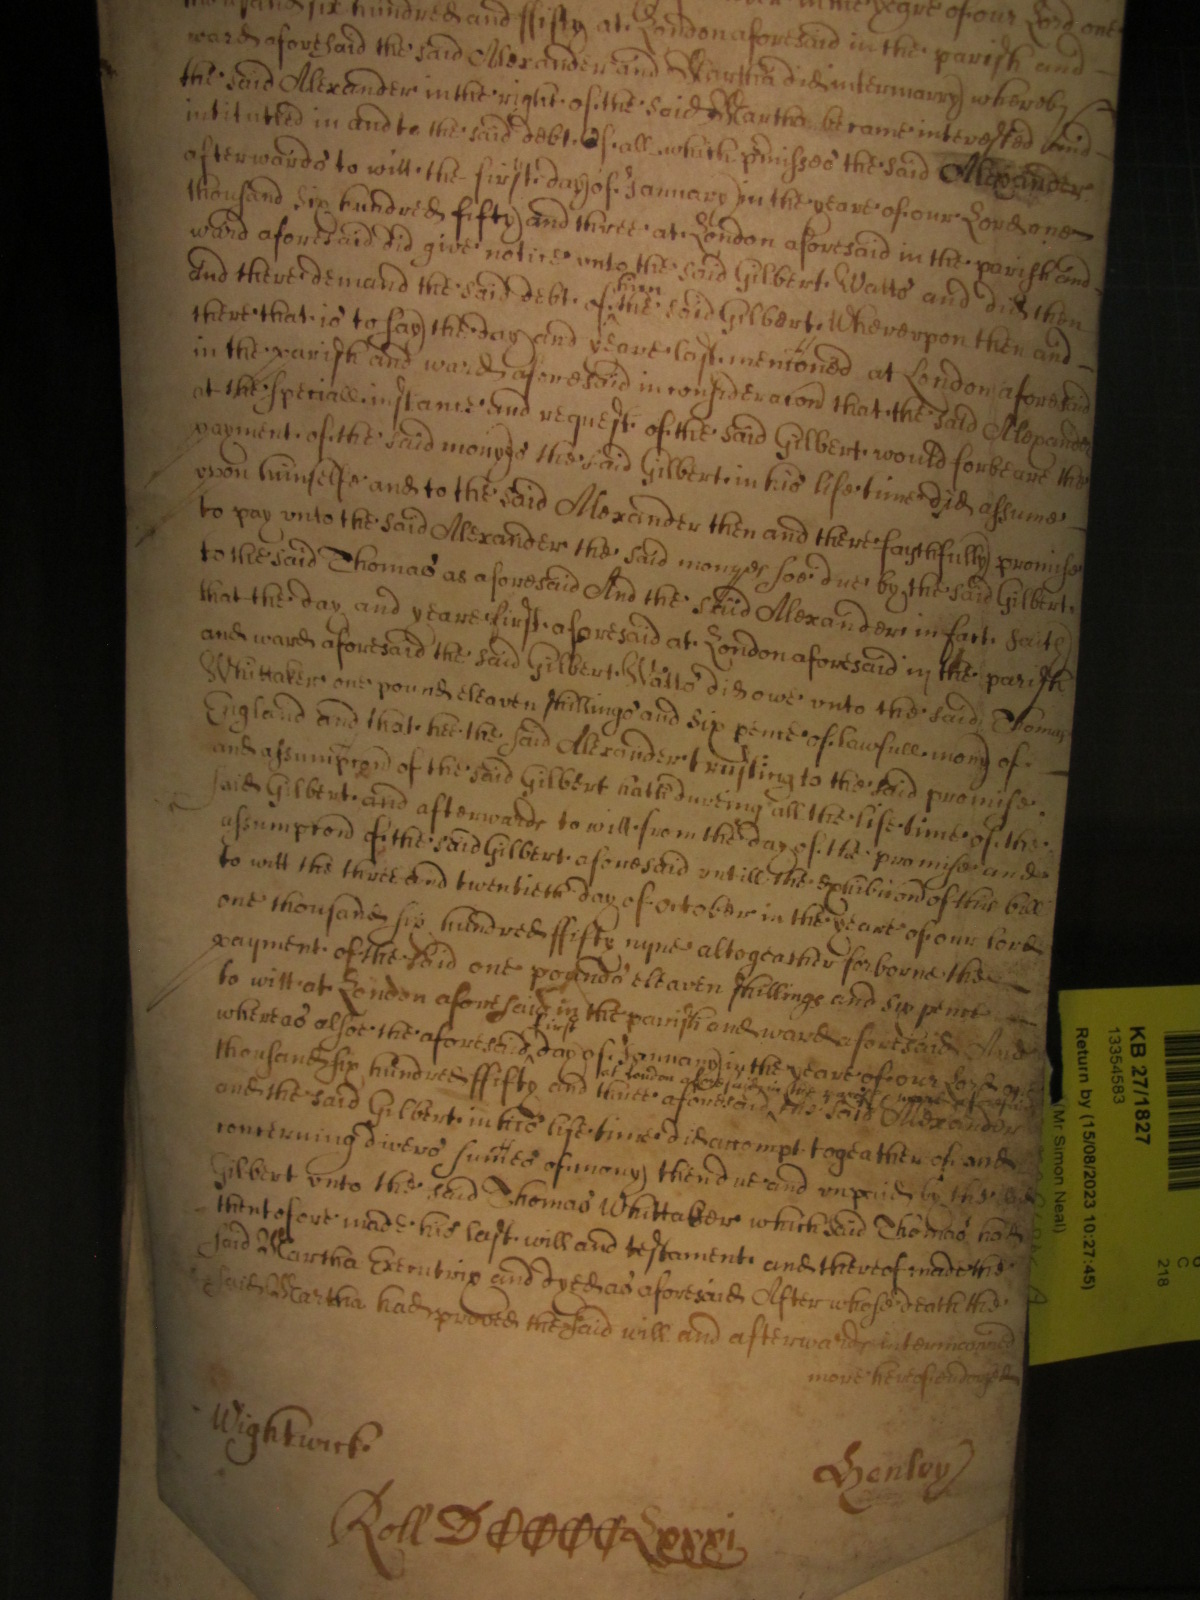 thousand six hundred and ffifty at London aforesaid in the parish and
ward aforesaid the said Alexander and Martha did intermarry whereby
the said Alexander in the right of the said Martha became interested and
intituted in and to the said debt Of all which pmisses the said Alexander
afterwards to witt the first day of January in the yeare of our Lord one
thousand six hundred fifty and three at London aforesaid in the parish and
ward aforesaid did give notice vnto the said Gilbert Watts and did then
and there demand the said debt of him the said Gilbert Wherevpon then and
there that is to say the day and yeare last mentioned at London aforesaid
in the parish and ward aforesaid in consideracion that the said Alexander
at the speciall instance and request of the said Gilbert would forbeare the
payment of the said monyes the said Gilbert in his life time did assume
vpon himselfe and to the said Alexander then and there faythfully promise
to pay vnto the said Alexander the said monyes soe due by the said Gilbert
to the said Thomas as aforesaid And the said Alexander in fact saith
that the day and yeare first aforesaid at London aforesaid in the parish
and ward aforesaid the said Gilbert Watts did owe vnto the said Thomas
Whittaker one pound eleaven shillings and six pence of lawfull mony of
England and that hee the said Alexander trusting to the said promise
and assumpcion of the said Gilbert hath dureing all the life time of the
said Gilbert and afterwards to witt from the day of the promise and
assumpcion of the said Gilbert aforesaid vntill the exhibicion of this bill
to witt the three and twentieth day of October in the yeare of our lord
one thousand six hundred ffifty nyne altogeather forborne the
payment of the said one pounds eleaven shillings and six pence
to witt at London aforesaid in the parish and ward aforesaid And
whereas alsoe the aforesaid first day of January in the yeare of our Lord one
thousand six hundred ffifty and three aforesaid at London aforesaid in the parish & ward aforesaid the said Alexander
and the said Gilbert in his life time did accompt togeather of and
concerning divers summes of mony then due and vnpaid by the said
Gilbert vnto the said Thomas Whittaker which said Thomas had
thentofore made his last will and testament and thereof made the
said Martha Executrix and dyed as aforesaid After whose death the
said Martha had proved the said will and afterwards intermarried
more hereof endorsed
Wightwick
Henley
Roll DCCCCLxxxi
KB 27/1827
13354583
Return by (15/08/2023 10:27:45)
(Mr Simon Neal)
C
218